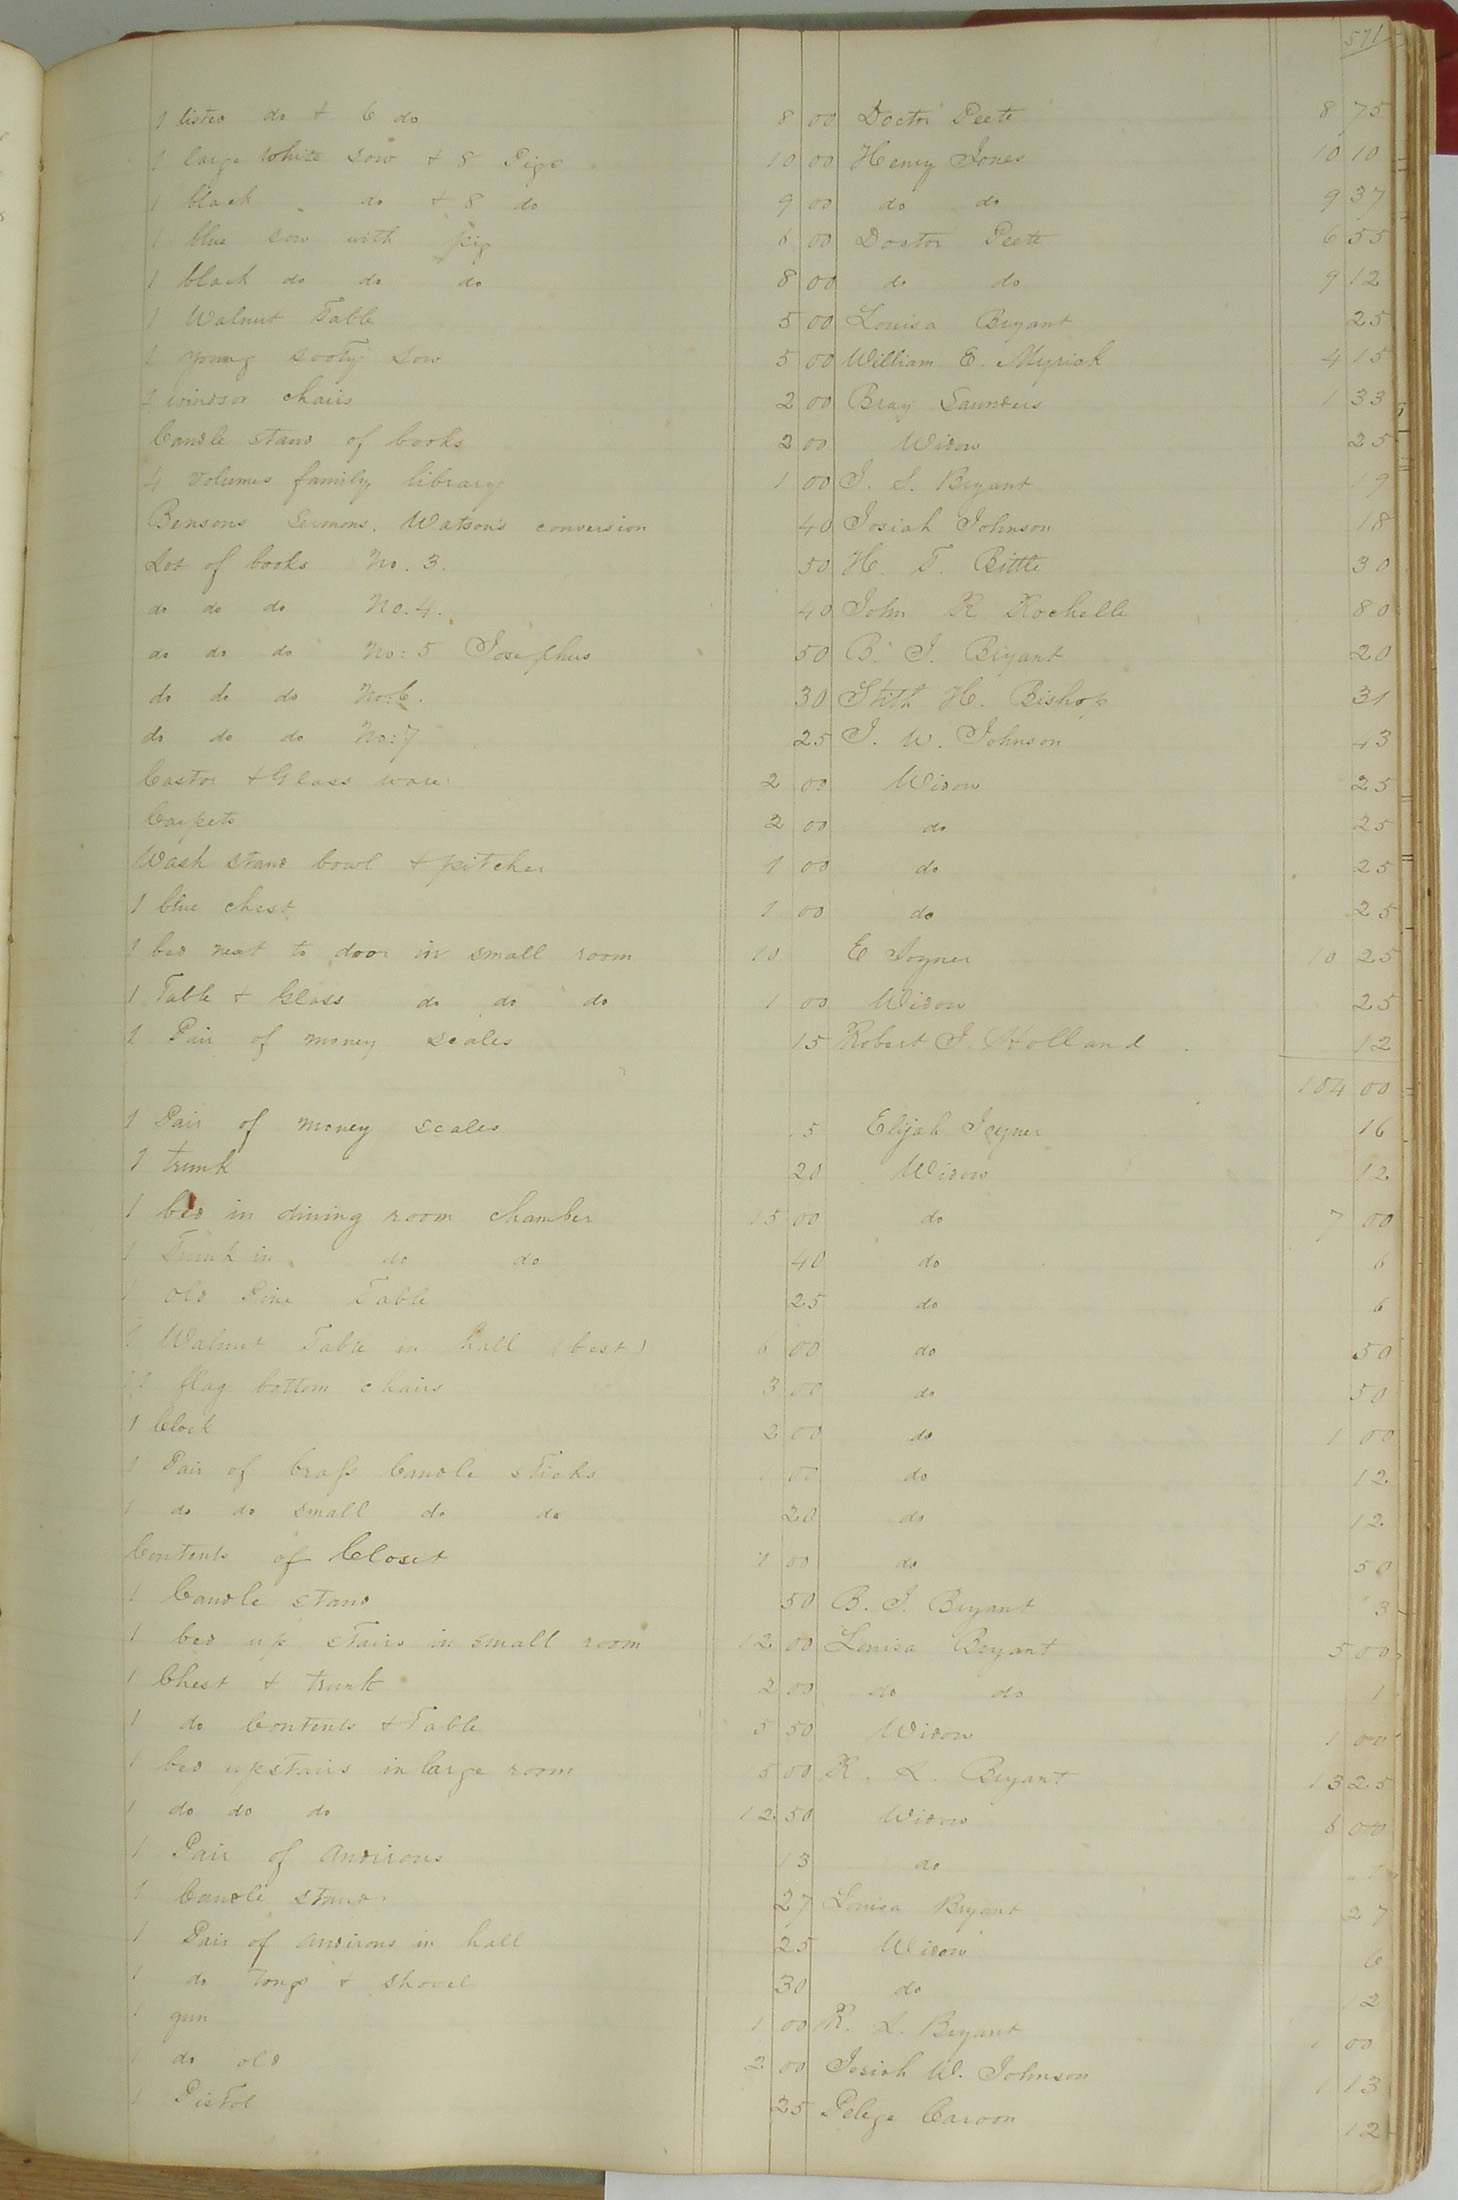 571
1 listed do + 6 do 8 00 Doctor Peete 8 75
1 large White Sow + 8 Pigs 10 00 Henry Jones 10 10
1 black do + 8 do 9 00 do do 9 37
1 blue sow with pig 6 00 Doctor Peete 6 55
1 black do do do 8 00 do do 9 12
1 Walnut Table 5 00 Louisa Bryant 25
1 young sooty Sow 5 00 William E. Myrick 4 15
windsor chairs 2 00 Bray Saunders 1 33
Candle stand of books 2 00 Widow 25
4 volumes family library 1 00 J. S. Bryant 19
Bensons Sermons, Watson's conversion 40 Josiah Johnson 18
Lot of books No. 3. 50 H. T. Bittle 30
do do do No. 4. 40 John R Rochelle 80
do do do No: 5 Josephus 50 B. J. Bryant 20
do do do No: 6. 30 Stith H. Bishop 31
do do do No: 7 25 J. W. Johnson 43
Castor + Glass ware 2 00 Widow 25
Carpets 2 00 do 25
Wash stand bowl + pitcher 1 00 do 25
1 blue chest 1 00 do 25
1 bed next to door in small room 10 E Joyner 10 25
1 Table + Glass do do do 1 00 Widow 25
1 Pair of money scales 15 Robert J. Holland 12
184 00
1 Pair of money scales 15 Elijah Joyner 16
1 trunk 20 Widow 12
1 bed in dining room chamber 15 00 do 7 00
1 Trunk in do do 40 do 6
1 old Pine Table 25 do 6
1 Walnut Table in hall (best) 6 00 do 50
flag bottom chairs 3 00 do 50
1 Clock 2 00 do 1 00
1 Pair of brass Candle sticks 1 00 do 12
1 do do small do do 20 do 12
Contents of Closet 1 00 do 50
1 Candle stand 50 B. J. Bryant 3
1 bed up stairs in small room 12 00 Louisa Bryant 5 00
1 Chest + trunk 2 00 do do 1
1 do Contents + Table 5 50 Widow 1 00
1 bed upstairs in large room 15 00 R. L. Bryant 13 25
1 do do do 12 50 Widow 6 00
1 Pair of Andirons 13 do
1 Candle stand 27 Louisa Bryant 27
1 Pair of Andirons in hall 25 Widow 6
1 do Tongs + Shovel 30 do 12
1 gun 1 00 R. L. Bryant 1 00
1 do old 2 00 Josiah W. Johnson 1 13
1 Pistol 25 Pelege Caroon 12